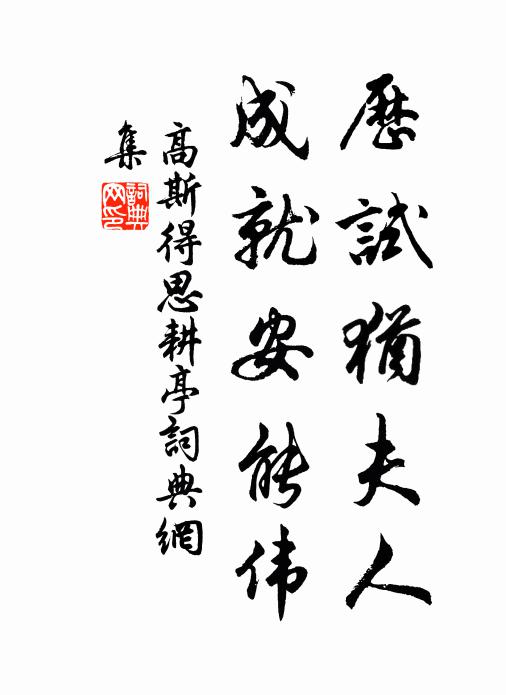 歷試猶夫人
成就安能伟
高斯得思耕亭詞典網
集
詞典网印